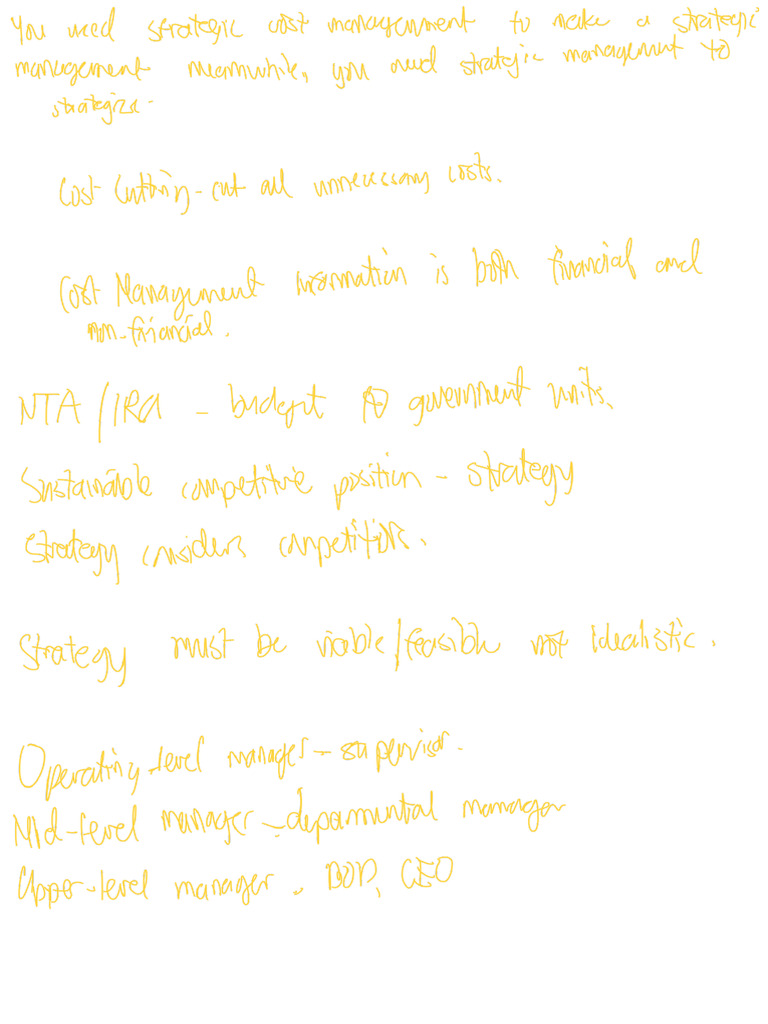 You need strategic cost management to make a strategic
management meanwhile, you need strategic management to
strategize.
Cost Cutting - cut all unnecessary costs.
Cost Management information is both financial and
non-financial.
NTA / IRA - budget government units.
Sustainable competitive position - strategy
Strategy considers competitors.
Strategy must be viable/feasible not idealistic.
Operating-level manager - supervisor.
Mid-level manager - deparmental manager
Upper-level manager - BOD, CEO